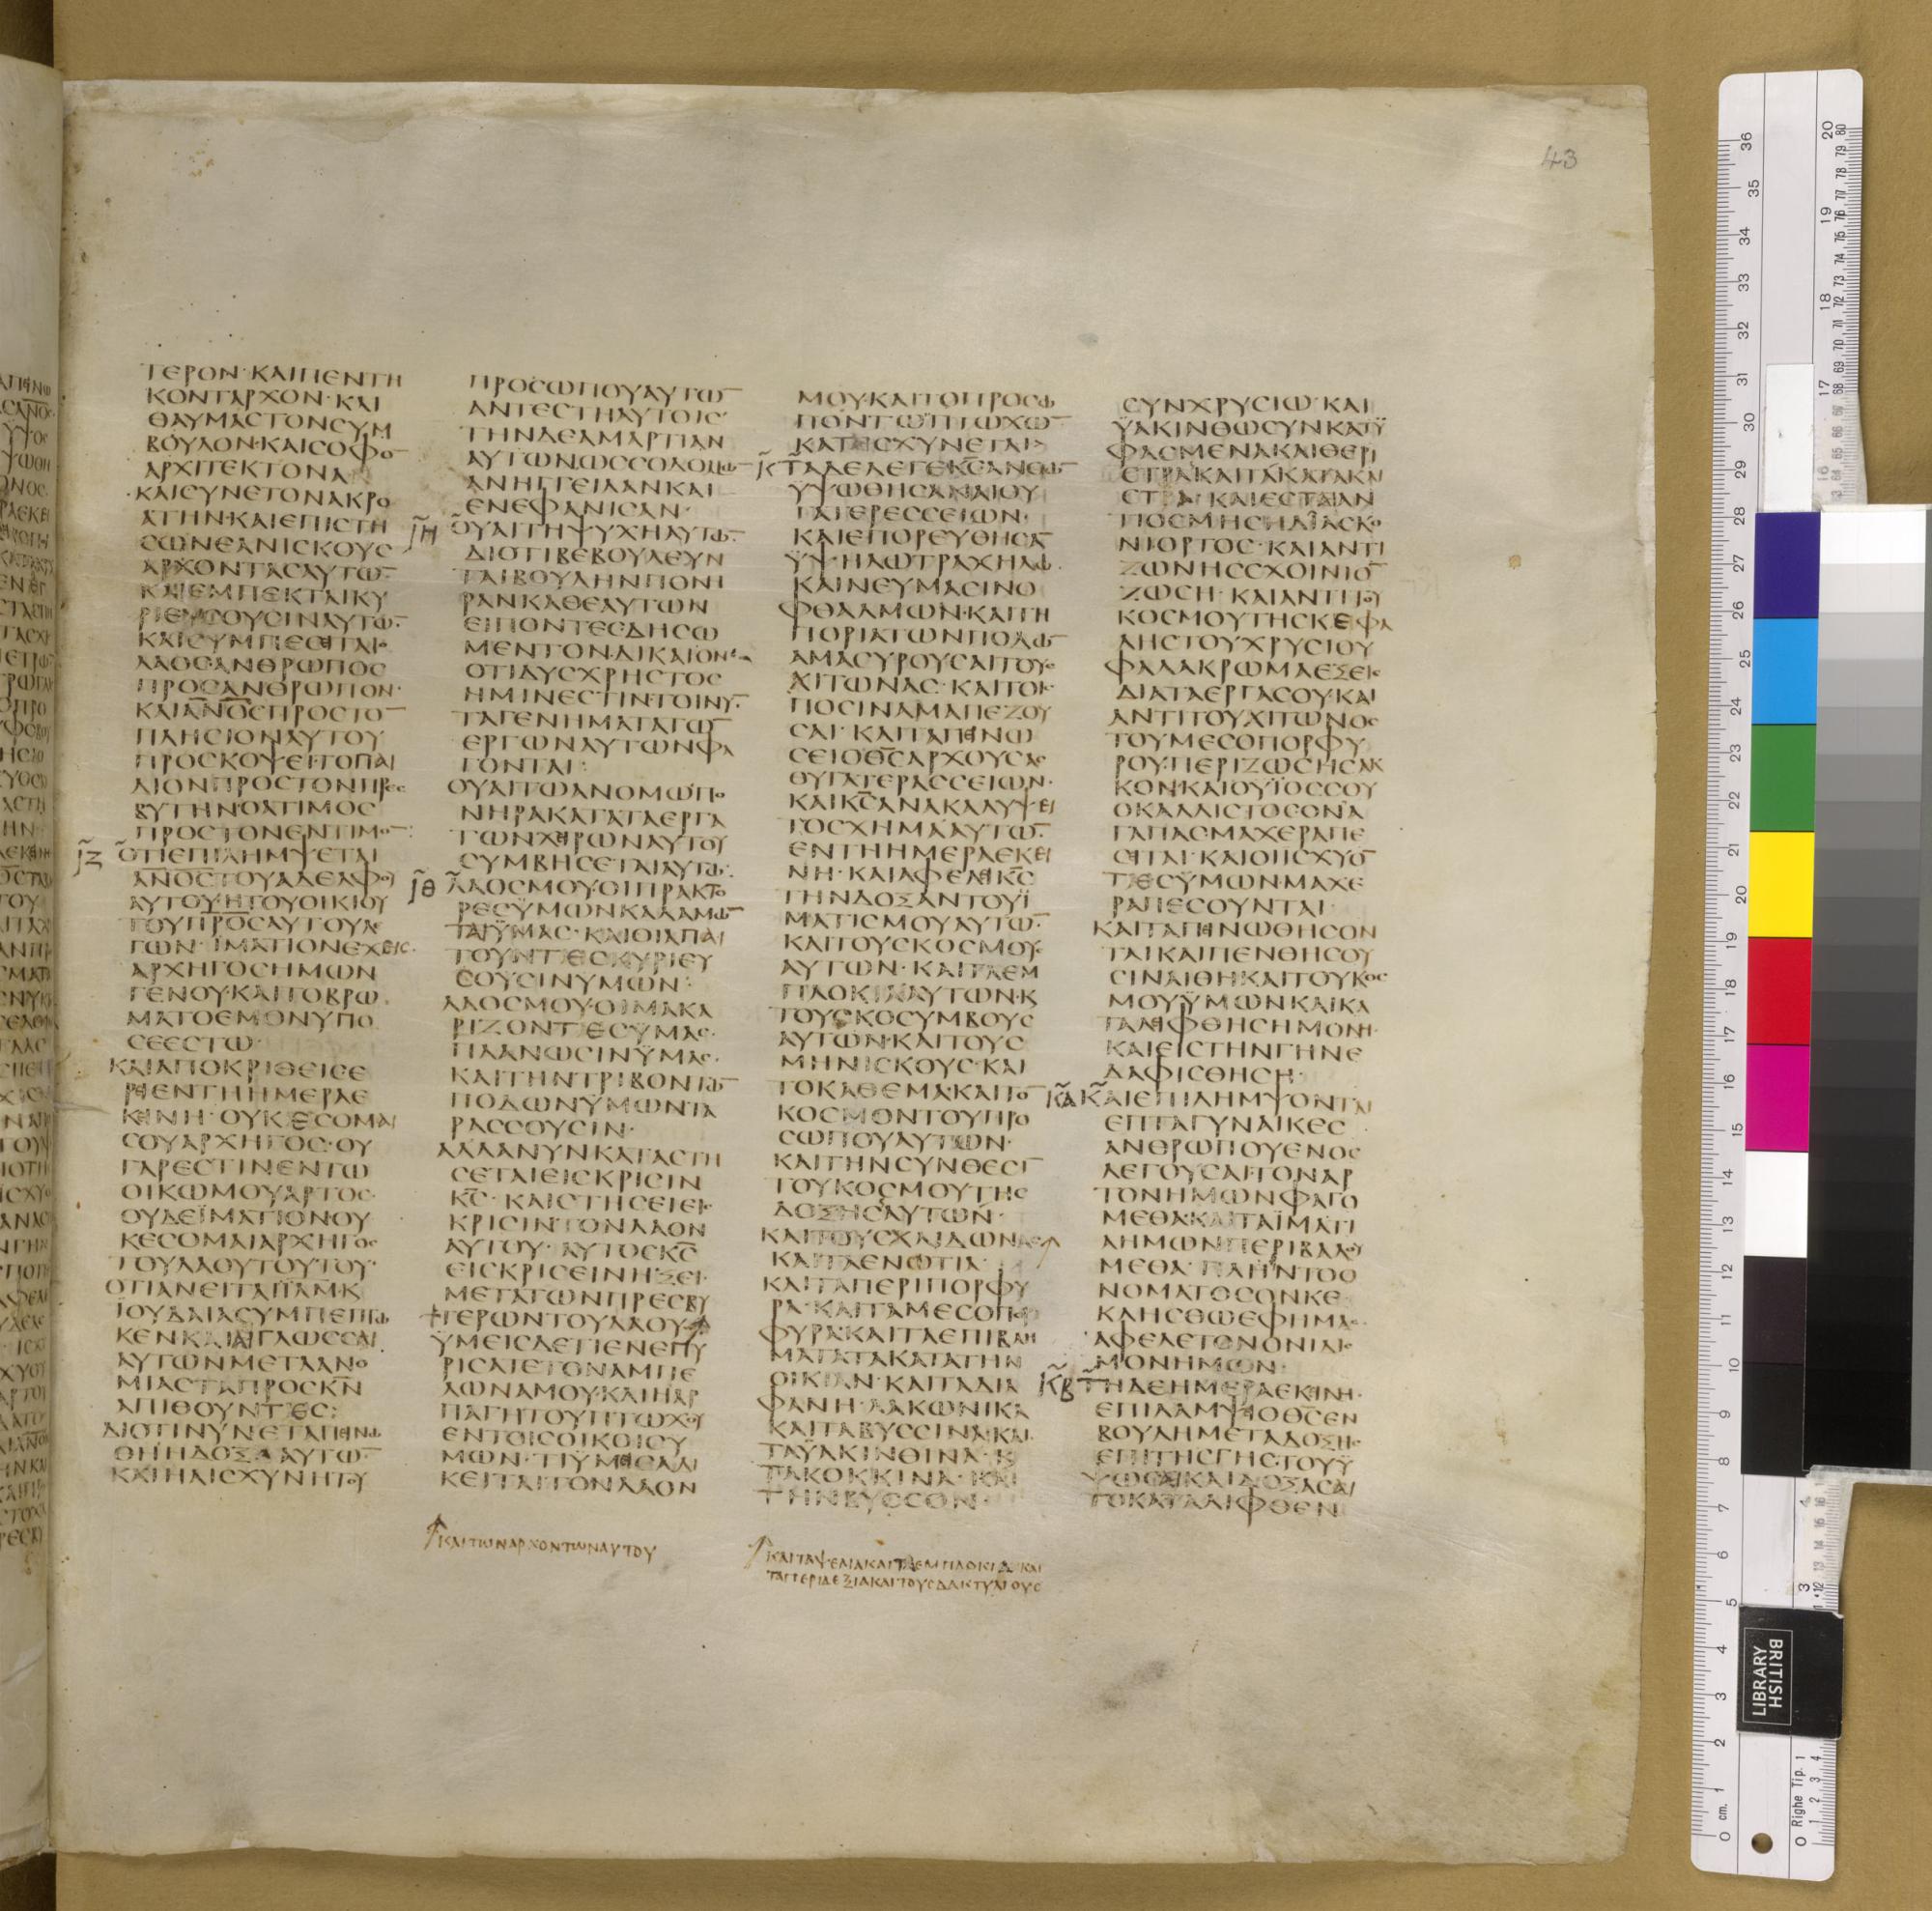 43
ΤΕΡΟΝ·ΚΑΙΠΕΝΤΗ
ΚΟΝΤΑΡΧΟΝ·ΚΑΙ
ΘΑΥΜΑΣΤΟΝϹΥΜ
ΒΟΥΛΟΝ·ΚΑΙϹΟΦΟ̅
ΑΡΧΙΤΕΚΤΟΝΑ
ΚΑΙϹΥΝΕΤΟΝΑΚΡΟ
ΑΤΗΝ·ΚΑΙΕΠΙϹΤΗ
ϹΩΝΕΑΝΙϹΚΟΥϹ
ΑΡΧΟΝΤΑϹΑΥΤΩ̅
ΚΑΙΕΜΠΕΚΤΑΙΚΥ
ΡΙΕΥϹΟΥϹΙΝΑΥΤΩ̅·
ΚΑΙϹΥΜΠΕϹΙΤΑΙΟ
ΛΑΟϹΑΝΘΡΩΠΟϹ
ΠΡΟϹΑΝΘΡΩΠΟΝ·
ΚΑΙΑΝΟϹΠΡΟϹΤΟ̅
ΠΛΗϹΙΟΝΑΥΤΟΥ
ΠΡΟϹΚΟΨΕΙΤΟΠΑΙ
ΔΙΟΝΠΡΟϹΤΟΝΠΡΕϹ
ΒΥΤΗΝΟΑΤΙΜΟϹ
ΠΡΟϹΤΟΝΕΝΤΙΜΟ̅:
ΙΖ ΟΤΙΕΠΙΛΗΜΨΕΤΑΙ
ΑΝΟϹΤΟΥΑΔΕΛΦΟΥ
ΑΥΤΟΥ·ΗΤΟΥΟΙΚΙΟΥ
ΤΟΥΠΡΟϹΑΥΤΟΥΛΕ
ΓΩΝ·ΪΜΑΤΙΟΝΕΧΕΙϹ·
ΑΡΧΗΓΟϹΗΜΩΝ
ΓΕΝΟΥ·ΚΑΙΤΟΒΡΩ
ΜΑΤΟΕΜΟΝΥΠΟ
ϹΕΕϹΤΩ·
ΚΑΙΑΠΟΚΡΙΘΕΙϹΕ
ΡΙΕΝΤΗΗΜΕΡΑΕ
ΚΙΝΗ·ΟΥΚΕϹΟΜΑΙ
ϹΟΥΑΡΧΗΓΟϹ·ΟΥ
ΓΑΡΕϹΤΙΝΕΝΤΩ
ΟΙΚΩΜΟΥΑΡΤΟϹ·
ΟΥΔΕΪΜΑΤΙΟΝΟΥ
ΚΕϹΟΜΑΙΑΡΧΗΓΟϹ
ΤΟΥΛΑΟΥΤΟΥΤΟΥ·
ΟΤΙΑΝΕΙΤΑΙΪΛΗΜΚ
ΪΟΥΔΑΙΑϹΥΜΠΕΠΤΩ
ΚΕΝΚΑΙΑΙΓΛΩϹϹΑΙ
ΑΥΤΩΝΜΕΤΑΑΝΟ
ΜΙΑϹΤΑΠΡΟϹΚΝ
ΑΠΙΘΟΥΝΤΕϹ:
ΔΙΟΤΙΝΥΝΕΤΑΠΙΝΩ
ΘΗΗΔΟΞΑΑΥΤΩ̅·
ΚΑΙΗΑΙϹΧΥΝΗΤΟΥ
ΠΡΟϹΩΠΟΥΑΥΤΩ̅
ΑΝΤΕϹΤΗΑΥΤΟΙϹ·
ΤΗΝΔΕΑΜΑΡΤΙΑΝ
ΑΥΤΩΝΩϹϹΟΔΟΜΩ̅
ΑΝΗΓΓΕΙΛΑΝΚΑΙ
ΕΝΕΦΑΝΙϹΑΝ·
ΙΗ ΟΥΑΙΤΗΨΥΧΗΑΥΤΩ̅·
ΔΙΟΤΙΒΕΒΟΥΛΕΥΝ
ΤΑΙΒΟΥΛΗΝΠΟΝΗ
ΡΑΝΚΑΘΕΑΥΤΩΝ
ΕΙΠΟΝΤΕϹΔΗϹΩ
ΜΕΝΤΟΝΔΙΚΑΙΟΝ
ΟΤΙΔΥϹΧΡΗϹΤΟϹ
ΗΜΙΝΕϹΤΙΝ·ΤΟΙΝΥ̅
ΤΑΓΕΝΗΜΑΤΑΤΩ̅
ΕΡΓΩΝΑΥΤΩΝΦΑ
ΓΟΝΤΑΙ:
ΟΥΑΙΤΩΑΝΟΜΩΠΟ
ΝΗΡΑΚΑΤΑΤΑΕΡΓΑ
ΤΩΝΧΙΡΩΝΑΥΤΟΥ
ϹΥΜΒΗϹΕΤΑΙΑΥΤΩ:
ΙΘ ΛΑΟϹΜΟΥ·ΟΙΠΡΑΚΤΟ
ΡΕϹΫΜΩΝΚΑΛΑΜΩ̅
ΤΑΙΫΜΑϹ·ΚΑΙΟΙΑΠΑΙ
ΤΟΥΝΤΕϹΚΥΡΙΕΥ
ϹΟΥϹΙΝΥΜΩΝ:
ΛΑΟϹΜΟΥ·ΟΙΜΑΚΑ
ΡΙΖΟΝΤΕϹΫΜΑϹ·
ΠΛΑΝΩϹΙΝΫΜΑϹ·
ΚΑΙΤΗΝΤΡΙΒΟΝΤΩ̅
ΠΟΔΩΝΫΜΩΝΤΑ
ΡΑϹϹΟΥϹΙΝ·
ΑΛΛΑΝΥΝΚΑΤΑϹΤΗ
ϹΕΤΑΙΕΙϹΚΡΙϹΙΝ
ΚϹ·ΚΑΙϹΤΗϹΕΙΕΙϹ
ΚΡΙϹΙΝΤΟΝΛΑΟΝ
ΑΥΤΟΥ·ΑΥΤΟϹΚϹ
ΕΙϹΚΡΙϹΕΙΝΗΞΕΙ·
ΜΕΤΑΤΩΝΠΡΕϹΒΥ
ΤΕΡΩΝΤΟΥΛΑΟΥ
ΫΜΕΙϹΔΕΤΙΕΝΕΠΥ
ΡΙϹΑΤΕΤΟΝΑΜΠΕ
ΛΩΝΑΜΟΥ·ΚΑΙΗΑΡ
ΠΑΓΗΤΟΥΠΤΩΧΟΥ
ΕΝΤΟΙϹΟΙΚΟΙϹΥ
ΜΩΝ·ΤΙΫΜΕΙϹΑΔΙ
ΚΕΙΤΑΙΤΟΝΛΑΟΝ
ΚΑΙΤΩΝΑΡΧΟΝΤΩΝΑΥΤΟΥ
ΜΟΥ·ΚΑΙΤΟΠΡΟϹΩ
ΠΟΝΤΩΠΤΩΧΩ̅
ΚΑΤΕϹΧΥΝΕΤΑΙ
Κ ΤΑΔΕΛΕΓΕΙΚϹΑΝΘΩ̅
ΥΨΩΘΗϹΑΝΑΙΟΥ
ΓΑΤΕΡΕϹϹΕΙΩΝ·
ΚΑΙΕΠΟΡΕΥΘΗϹΑ̅
ΫΨΗΛΩΤΡΑΧΗΛΩ·
ΚΑΙΝΕΥΜΑϹΙΝΟ
ΦΘΑΛΜΩΝ·ΚΑΙΤΗ
ΠΟΡΙΑΤΩΝΠΟΔΩ̅
ΑΜΑϹΥΡΟΥϹΑΙΤΟΥϹ
ΧΙΤΩΝΑϹ·ΚΑΙΤΟΙϹ
ΠΟϹΙΝΑΜΑΠΕΖΟΥ
ϹΑΙ·ΚΑΙΤΑΠΙΝΩ
ϹΕΙΟΘϹΑΡΧΟΥϹΑϹ
ΘΥΓΑΤΕΡΑϹϹΕΙΩΝ·
ΚΑΙΚϹΑΝΑΚΑΛΥΨΕΙ
ΤΟϹΧΗΜΑΑΥΤΩ̅·
ΕΝΤΗΗΜΕΡΑΕΚΕΙ
ΝΗ·ΚΑΙΑΦΕΛΙΚϹ
ΤΗΝΔΟΞΑΝΤΟΥΪ
ΜΑΤΙϹΜΟΥΑΥΤΩ̅·
ΚΑΙΤΟΥϹΚΟϹΜΟΥϹ
ΑΥΤΩΝ·ΚΑΙΤΑΕΜ
ΠΛΟΚΙΑΑΥΤΩΝ·Κ
ΤΟΥϹΚΟϹΥΜΒΟΥϹ
ΑΥΤΩΝ·ΚΑΙΤΟΥϹ
ΜΗΝΙϹΚΟΥϹ·ΚΑΙ
ΤΟΚΑΘΕΜΑ·ΚΑΙΤΟ̅
ΚΟϹΜΟΝΤΟΥΠΡΟ
ϹΩΠΟΥΑΥΤΩΝ·
ΚΑΙΤΗΝϹΥΝΘΕϹΙ̅
ΤΟΥΚΟϹΜΟΥΤΗϹ
ΔΟΞΗϹΑΥΤΩΝ·
ΚΑΙΤΟΥϹΧΛΙΔΩΝΑϹ
ΚΑΙΤΑΕΝΩΤΙΑ·
ΚΑΙΤΑΠΕΡΙΠΟΡΦΥ
ΡΑ·ΚΑΙΤΑΜΕϹΟΠΟΡ
ΦΥΡΑ·ΚΑΙΤΑΕΠΙΒΛΗ
ΜΑΤΑΤΑΚΑΤΑΤΗΝ
ΟΙΚΙΑΝ·ΚΑΙΤΑΔΙΑ
ΦΑΝΗ·ΛΑΚΩΝΙΚΑ
ΚΑΙΤΑΒΥϹϹΙΝΑ·ΚΑΙ
ΤΑΫΑΚΙΝΘΙΝΑ·Κ
ΤΑΚΟΚΚΙΝΑ·ΚΑΙ
ΤΗΝΒΥϹϹΟΝ·
ΚΑΙΤΑΨΕΛΙΑΚΑΙΤΑΕΜΠΛΟΚΙΑΚΑΙ
ΤΑΠΕΡΙΔΕΞΙΑΚΑΙΤΟΥϹΔΑΚΤΥΛΙΟΥϹ
ϹΥΝΧΡΥϹΙΩ·ΚΑΙ
ΫΑΚΙΝΘΩϹΥΝΚΑΘΥ
ΦΑϹΜΕΝΑΚΑΙΘΕΡΙ
ϹΤΡΑΚΑΙΤΑΚΑΤΑΚΛΙ
ϹΤΑ·ΚΑΙΕϹΤΑΙΑΝ
ΤΙΟϹΜΗϹΗΔΙΑϹΚΟ
ΝΙΟΡΤΟϹ·ΚΑΙΑΝΤΙ
ΖΩΝΗϹϹΧΟΙΝΙΟ̅
ΖΩϹΗ·ΚΑΙΑΝΤΙΤΟΥ
ΚΟϹΜΟΥΤΗϹΚΕΦΑ
ΛΗϹΤΟΥΧΡΥϹΙΟΥ
ΦΑΛΑΚΡΩΜΑΕΞΕΙϹ
ΔΙΑΤΑΕΡΓΑϹΟΥ·ΚΑΙ
ΑΝΤΙΤΟΥΧΙΤΩΝΟϹ
ΤΟΥΜΕϹΟΠΟΡΦΥ
ΡΟΥ·ΠΕΡΙΖΩϹΗϹΑΚ
ΚΟΝ·ΚΑΙΟΥΪΟϹϹΟΥ
ΟΚΑΛΛΙϹΤΟϹΟΝΑ
ΓΑΠΑϹΜΑΧΕΡΑΠΕ
ϹΙΤΑΙ·ΚΑΙΟΙΙϹΧΥΟ̅
ΤΕϹΫΜΩΝ·ΜΑΧΕ
ΡΑΠΕϹΟΥΝΤΑΙ·
ΚΑΙΤΑΠΙΝΩΘΗϹΟΝ
ΤΑΙΚΑΙΠΕΝΘΗϹΟΥ
ϹΙΝΑΙΘΗΚΑΙΤΟΥΚΟϹ
ΜΟΥΫΜΩΝΚΑΙΚΑ
ΤΑΛΙΦΘΗϹΗΜΟΝΗ·
ΚΑΙΕΙϹΤΗΝΓΗΝΕ
ΔΑΦΙϹΘΗϹΗ·
ΚΑ ΚΑΙΕΠΙΛΗΜΨΟΝΤΑΙ
ΕΠΤΑΓΥΝΑΙΚΕϹ
ΑΝΘΡΩΠΟΥΕΝΟϹ
ΛΕΓΟΥϹΑΙ·ΤΟΝΑΡ
ΤΟΝΗΜΩΝΦΑΓΟ
ΜΕΘΑ·ΚΑΙΤΑΪΜΑΤΙ
ΑΗΜΩΝΠΕΡΙΒΑΛΟΥ
ΜΕΘΑ·ΠΛΗΝΤΟΟ
ΝΟΜΑΤΟϹΟΝΚΕ
ΚΛΗϹΘΩΕΦΗΜΑϹ·
ΑΦΕΛΕΤΟΝΟΝΙΔΙϹ
ΜΟΝΗΜΩΝ·
ΚΒ ΤΗΔΕΗΜΕΡΑΕΚΙΝΗ·
ΕΠΙΛΑΜΨΙΟΘϹΕΝ
ΒΟΥΛΗΜΕΤΑΔΟΞΗϹ
ΕΠΙΤΗϹΓΗϹ·ΤΟΥΫ
ΨΩϹΑΙΚΑΙΔΟΞΑϹΑΙ
ΤΟΚΑΤΑΛΙΦΘΕΝ
BRITISH
LIBRARY